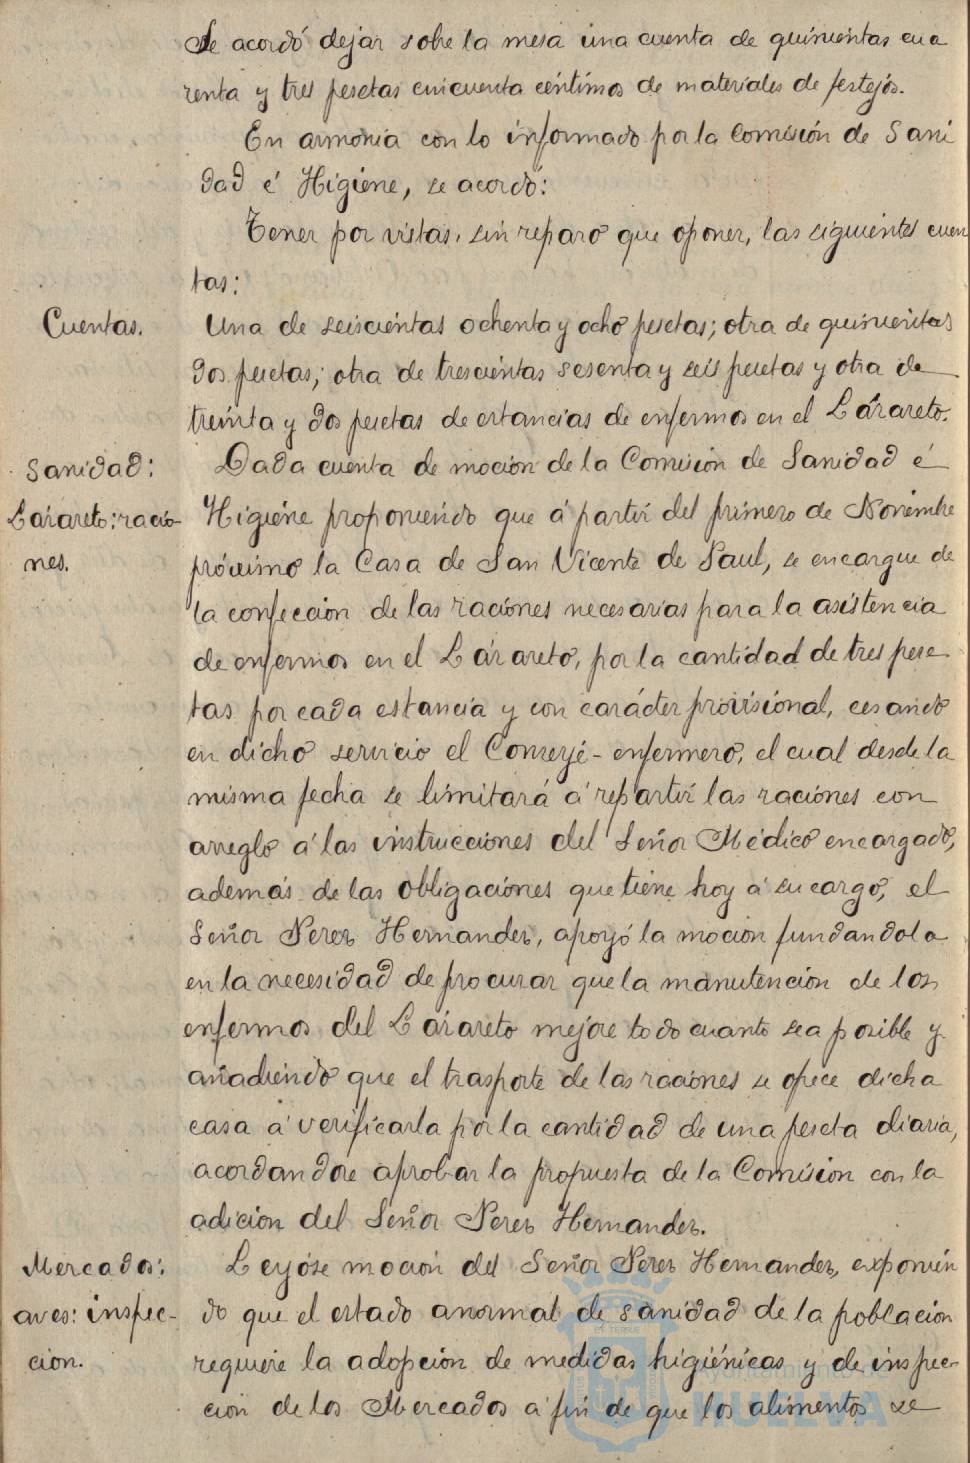 Se acordó dejar sobre la mesa una cuenta de quinientas cua
renta y tres pesetas cincuenta céntimos de materiales de festejos.
En armonía con lo informado por la Comisión de Sani
dad é Higiene, se acordó:
Tener por vistas, sin reparo que oponer, las siguientes cuen
tas:
Cuentas.
Una de seiscientas ochenta y ocho pesetas; otra de quinientas
dos pesetas; otra de trescientas sesenta y seis pesetas y otra de
treinta y dos pesetas de estancias de enfermos en el Lázareto.
Sanidad:
Lázareto: racio-
nes.
Dada cuenta de moción de la Comisión de Sanidad é
Higiene proponiendo que á partir del primero de Noviembre
próximo la Casa de San Vicente de Paul, se encargue de
la confección de las raciones necesarias para la asistencia
de enfermos en el Lázareto, por la cantidad de tres pese
tas por cada estancia y con carácter provisional, cesando
en dicho servicio el Conserje-enfermero, el cual desde la
misma fecha se limitará á repartir las raciones con
arreglo á las instrucciones del Señor Médico encargado,
además de las obligaciones que tiene hoy á su cargo, el
Señor Perez Hernandez, apoyó la moción fundandola
en la necesidad de procurar que la manutención de los
enfermos del Lázareto mejore todo cuanto sea posible y
añadiendo que el trasporte de las raciones se ofrece dicha
casa á verificarla por la cantidad de una peseta diaria,
acordandose aprobar la propuesta de la Comisión con la
adición del Señor Perez Hernandez.
Mercados:
aves: inspec-
ción.
Leyóse moción del Señor Perez Hernandez, exponien
do que el estado anormal de sanidad de la población
requiere la adopción de medidas higiénicas y de inspec-
ción de los Mercados á fin de que los alimentos se
Ayuntamiento de
HUELVA